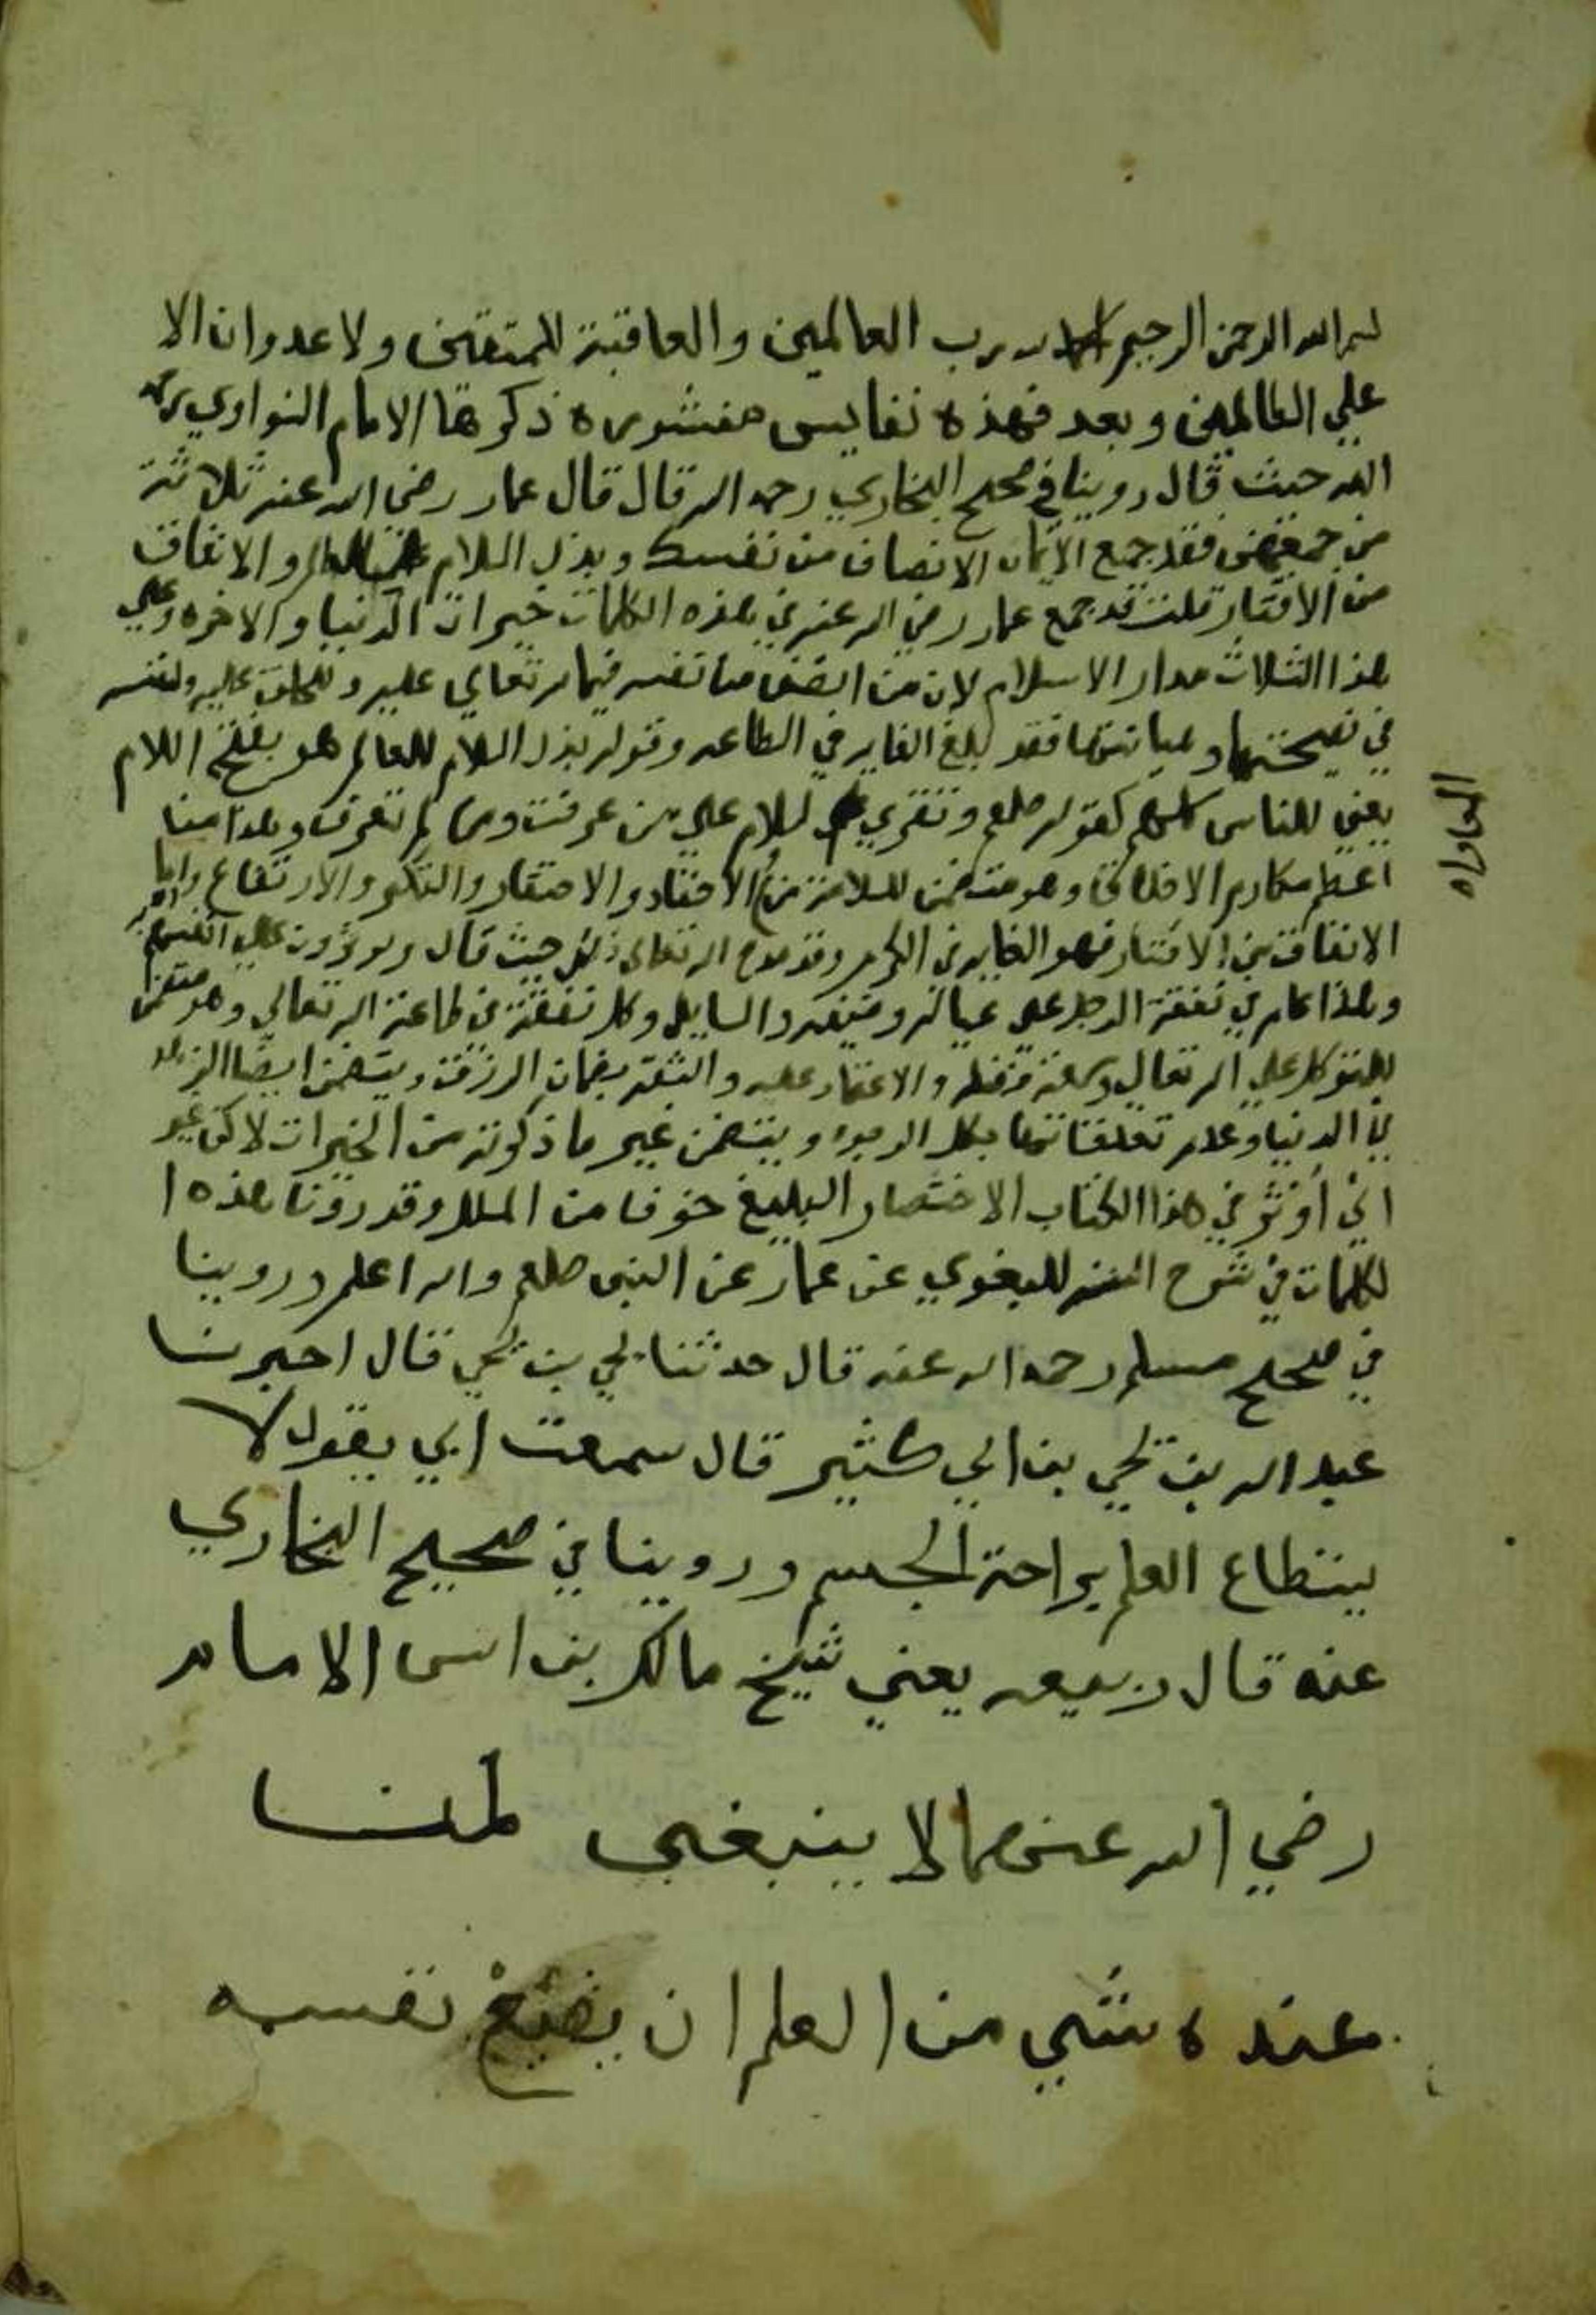 بسم الله الرحمن الرحيم الحمد لله رب العالمين والعاقبة للمتقين ولا عدوان الا
علي الظالمين وبعد فهذه نفايس منثوره ذكرها الامام النواوي رحمه
الله حيث قال روينا في صحيح البخاري رحمه الله قال قال عمار رضي الله عنه ثلاثة
من جمعهن فقد جمع الايمان الانصاف من نفسك وبذل السلام للعالم والانفاق
من الاقتار قلت قد جمع عمار رضي الله عنه في هذه الكلمات خيرات الدنيا والاخره وعلي
هذا الثلاث مدار الاسلام لان من انصف من نفسه فيما لله تعالي عليه وللخلق عليه ولنفسه
في نصيحتها وصيانتها فقد بلغ الغايه في الطاعه وقوله بذل السلام للعالم هو بفتح اللام
يعني للناس كلهم كقوله صلعم وتقري السلام علي من عرفت ومن لم تعرف وهذا من
اعظم مكارم الاخلاق وهو متضمن للسلامة من الاحقاد والاحتقار والتكبر والارتفاع واما
الانفاق من الاقتار فهو الغايه في الكرم وقد مدح الله تعالى ذلك حيث قال ويوثرون علي انفسهم
وهذا عام في نفقة الرجل علي عياله وضيفه والسايل وكل نفقة في طاعة الله تعالي وهو متضمن
للتوكل علي الله تعالي وسعة فضله والاعتماد عليه والثقه بضمان الرزق ويتضمن ايضا الزهد
في الدنيا وعدم تعلقاتها بكل الوجوه ويتضمن غير ما ذكرته من الخيرات لاكن غير
اني أوثر في هذا الكتاب الاختصار البليغ خوفا من الملل وقد روينا هذه ا
لكلمات في شرح السنه للبغوي عن عمار عن النبي صلعم والله اعلم وروينا
في صحيح مسلم رحمه الله عنه قال حدثنا يحي بن يحي قال اخبرنا
عبد الله بن يحي بن ابي كثير قال سمعت ابي يقول لا
يستطاع العلم براحة الجسم وروينا في صحيح البخاري
عنه قال ربيعه يعني شيخ مالك بن انس الامام
رضي الله عنهما لا ينبغي لمن
عنده شي من العلم ان يضيع نفسه